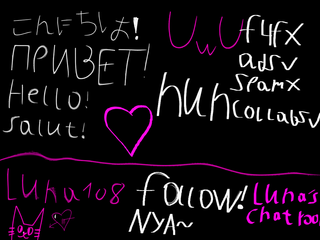 こんにちしよ!
ПРИВЕТ!
Hello!
Salut!
UwU
f4fx
adsv
spamx
huhcollabsv
Luna108
follow!
NYA~
Luna's
chat roo